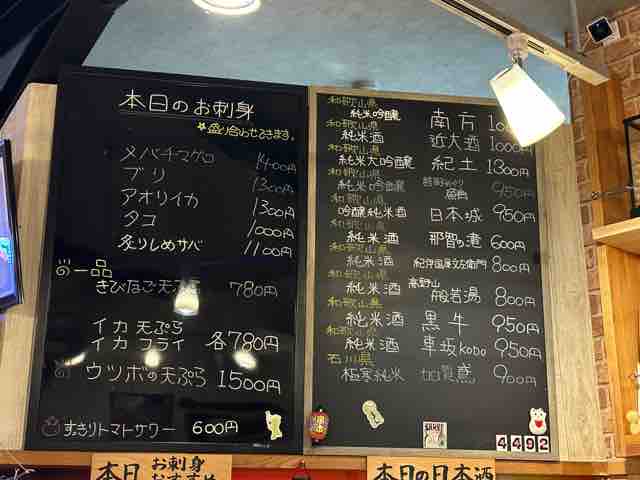 本日のお刺身
★盛り合わせできます。
メバチマグロ 1400円
ブリ 1300円
アオリイカ 1300円
タコ 1000円
炙りしめサバ 1100円
の一品
きびなご天ぷら 780円
イカ天ぷら
イカフライ 各780円
ウツボの天ぷら 1500円
すっきりトマトサワー 600円
本日 お刺身
おすすめ
和歌山県
純米吟醸 南方
和歌山県
純米酒 近大酒 1000円
和歌山県
純米大吟醸 紀土 1300円
和歌山県
純米吟醸 950円
和歌山県
吟醸純米酒 日本城 950円
和歌山県
純米酒 那智の滝 600円
和歌山県
純米酒 紀伊国屋文左衛門 800円
和歌山県
純米酒 高野山 般若湯 800円
和歌山県
純米酒 黒牛 950円
和歌山県
純米酒 車坂kobo 950円
石川県
極寒純米 加賀鳶 900円
4492
本日の日本酒